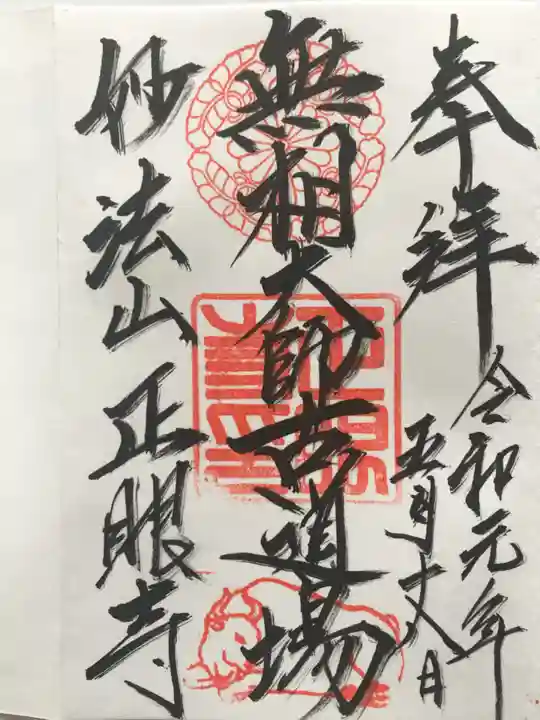 奉拝
令和元年
五月十六日
無相大師古道場
妙法山 正眼寺